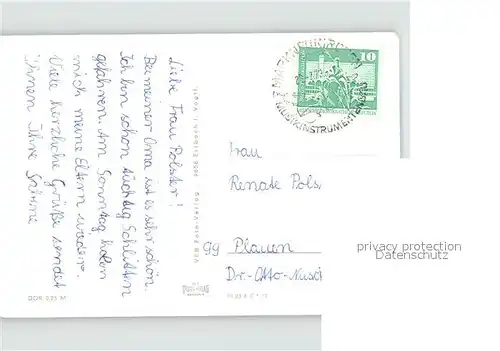 Liebe Frau Polster!
Bei meiner Oma ist es sehr schön.
Ich bin schon tüchtig Schlitten
gefahren. Am Sonntag holen
mich meine Eltern wieder.
Viele herzliche Grüße sendet
Ihnen Ihre Sabine
10
MUSIKINSTRUMENTEN
Frau
Renate Pols
99 Plauen
Dr.-Otto-Nusch
privacy protection
Datenschutz